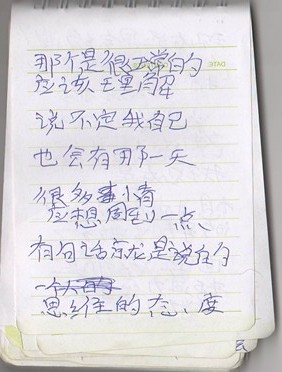 那个是很正常的
应该理解
说不定我自己
也会有那一天
很多事小看
应想周到一点
有句话永龙是说在个
思维的态度
DATE